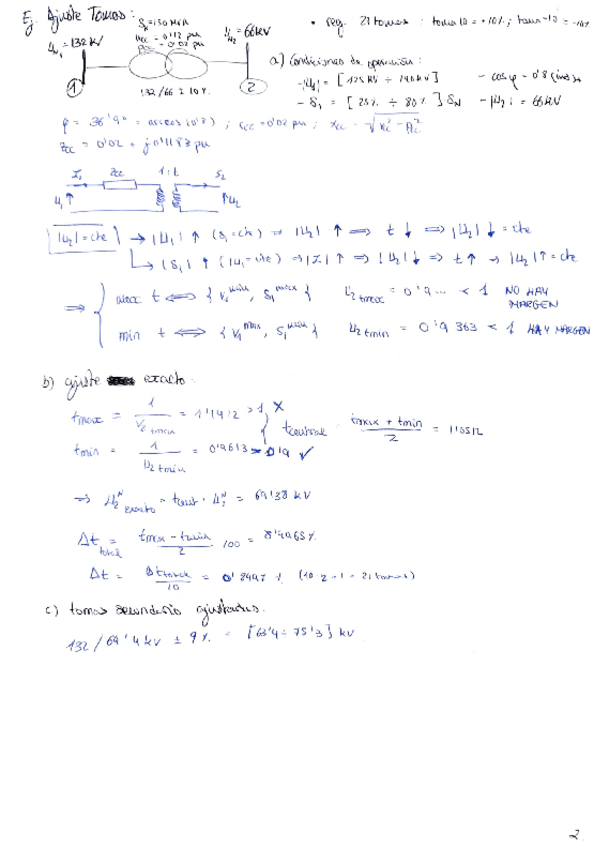 Ej. Ajuste Tomas:
S_N = 150 MVA
u_cc = 0'12 pu
p_cc = 0'02 pu
U_N1 = 132 kV
U_N2 = 66 kV
132/66 ± 10 %
1
2
• reg. 21 tomas : toma 10 = +10% ; toma -10 = -10%
a) Condiciones de operación :
- |U1| = [125 kV ÷ 140 kV]
- cos φ = 0'8 (ind)
- S1 = [25% ÷ 80%] S_N
- |U2| = 66 kV
φ = 36'9° = arccos (0'8) ; r_cc = 0'02 pu ; x_cc = √
z_cc = 0'02 + j 0'1183 pu
I1 z_cc 1:t S2
U1 ↑ ↑ U2
|U2| = cte → |U1| ↑ (S1 = cte) ⇒ |U2| ↑ ⇒ t ↓ ⇒ |U2| ↓ = cte
↳ |S1| ↑ (|U1| = cte) ⇒ |I| ↑ ⇒ |U2| ↓ ⇒ t ↑ → |U2| ↑ = cte
⇒ { max t ⟺ { V1^min, S1^max } U2 tmax = 0'9 ... < 1 NO HAY MARGEN
min t ⟺ { V1^max, S1^min } U2 tmin = < 1 HAY MARGEN
b) ajuste exacto :
t_max = 1 / V2 tmax = 1'1412 > 1, X
t_min = 1 / U2 tmin = 0'9613 > 0'9 ✓
t_central = t_max + t_min / 2 = 1'0512
⇒ U2^N exacto = t_cent · U2^N = 69'38 kV
Δt total = t_max - t_min / 2 · 100 = 8'9965 %
Δt = Δt total / 10 = 0'8997 % (10 · 2 + 1 = 21 tomas)
c) tomas secundario ajustadas.
132 / 69'4 kV ± 9 % = [63'4 ÷ 75'3] kV
2